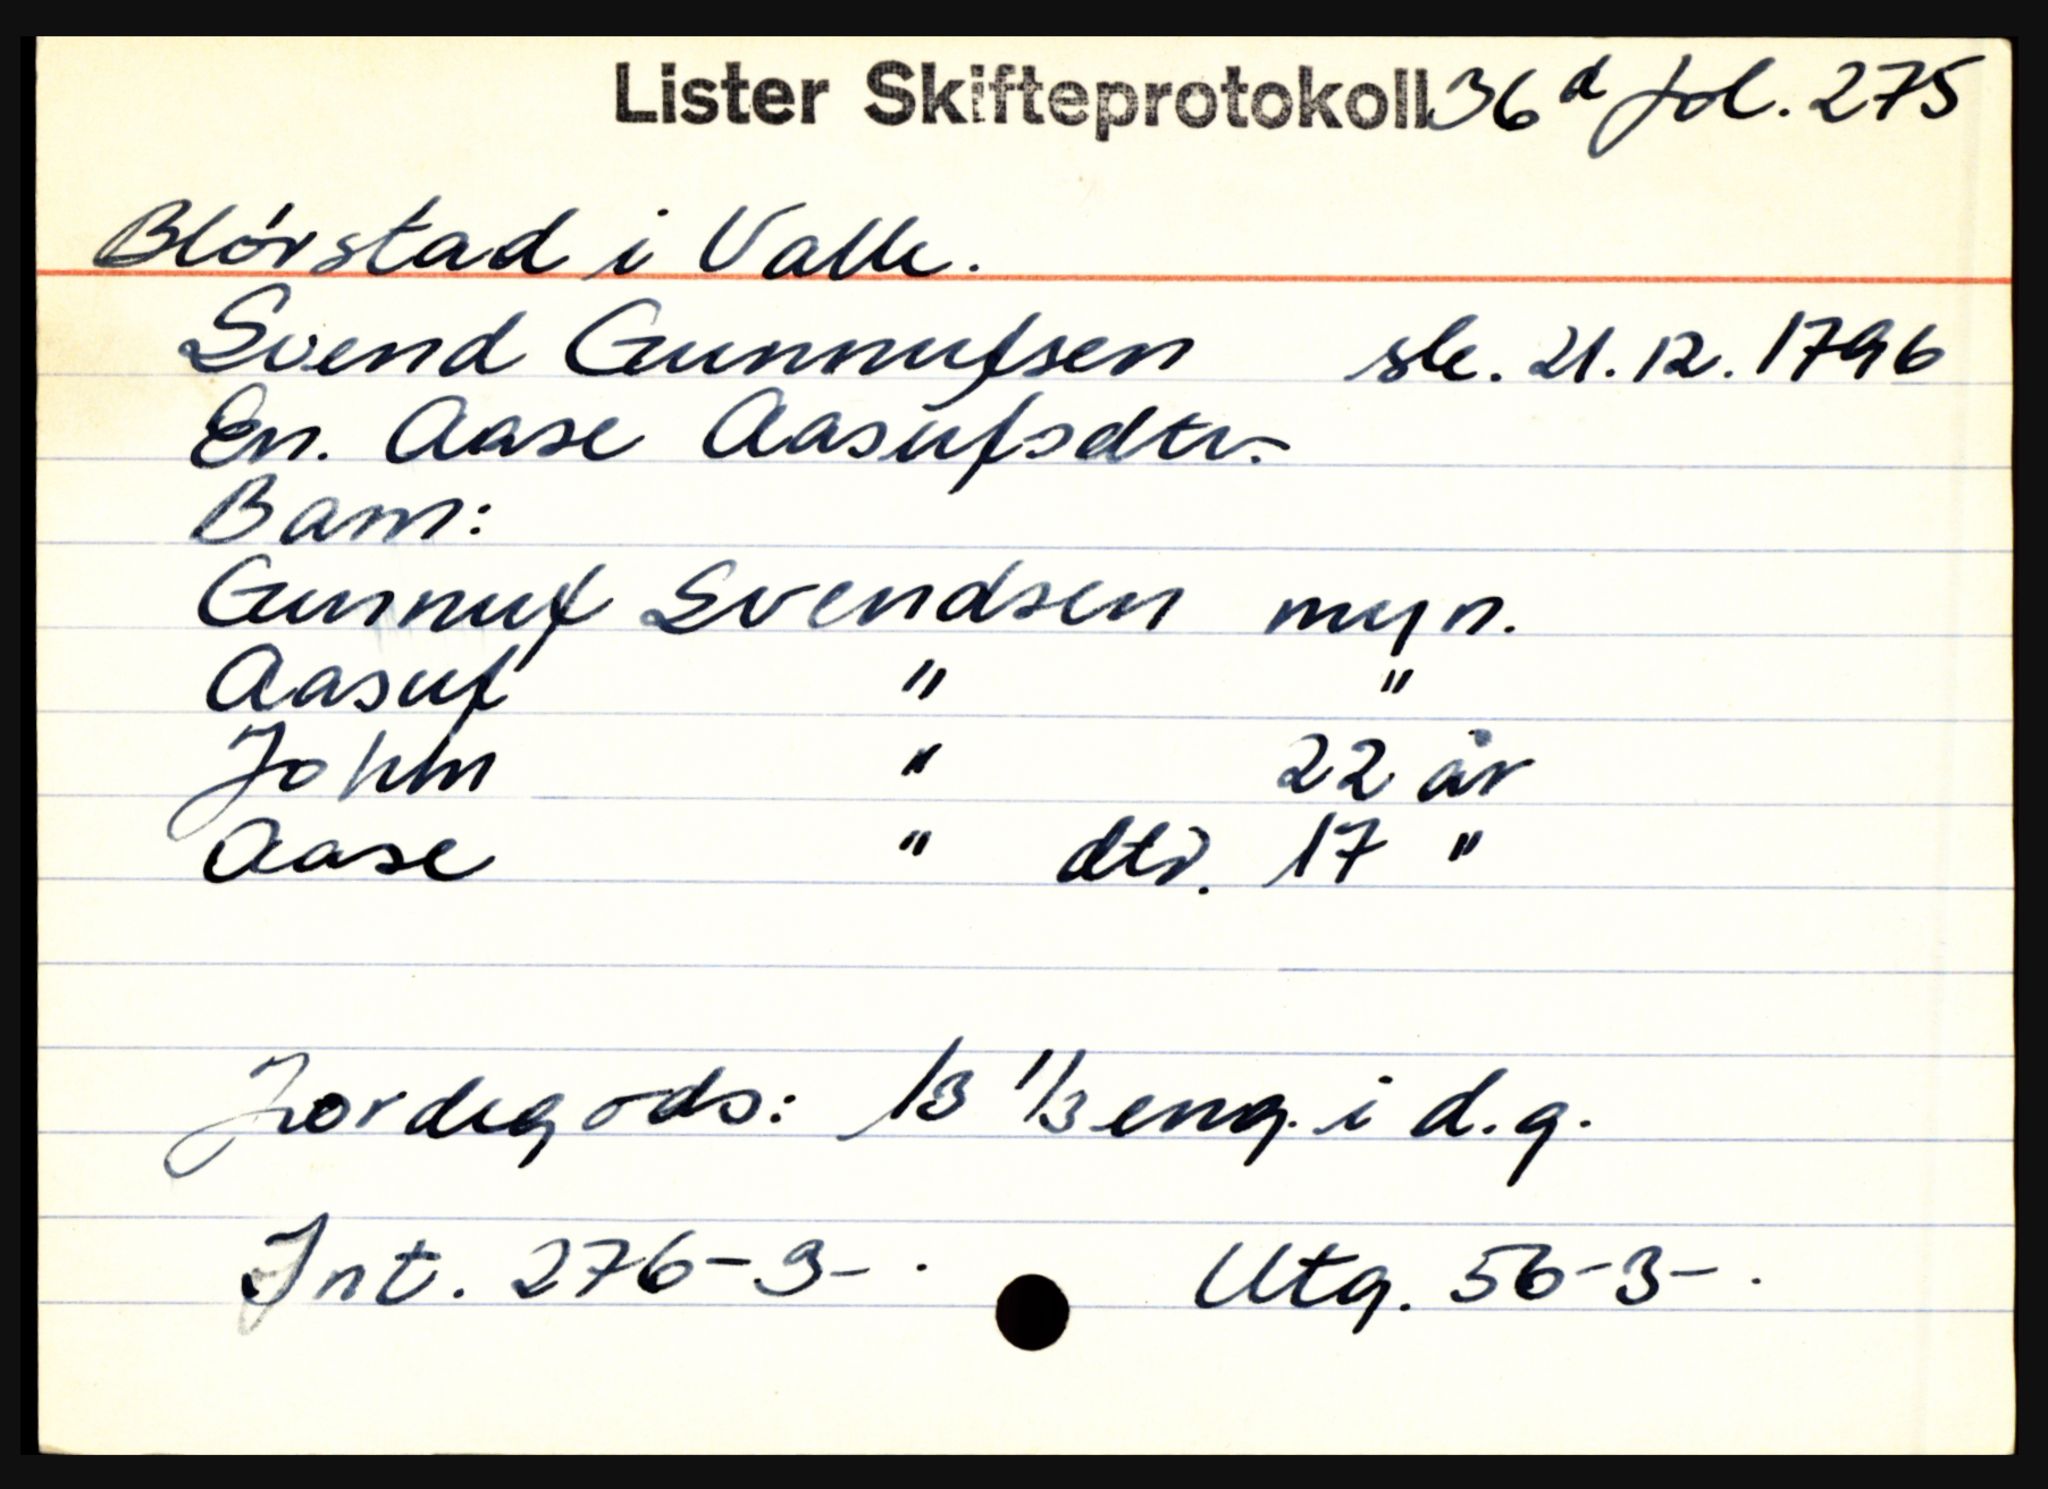 Lister Skifteprotokoll 36d fol. 275
Blørstad i Valle.
Svend Gunnufsen sk. 21.12.1796
En. Aase Aasufsdtr.
Barn:
Gunnuf Svendsen myn.
Aasuf " "
John " 22 år
Aase " dtr. 17 "
Jordegods: 1/3 1/3 eng. i d.g.
Int. 276-3-.
Utg. 56-3-.